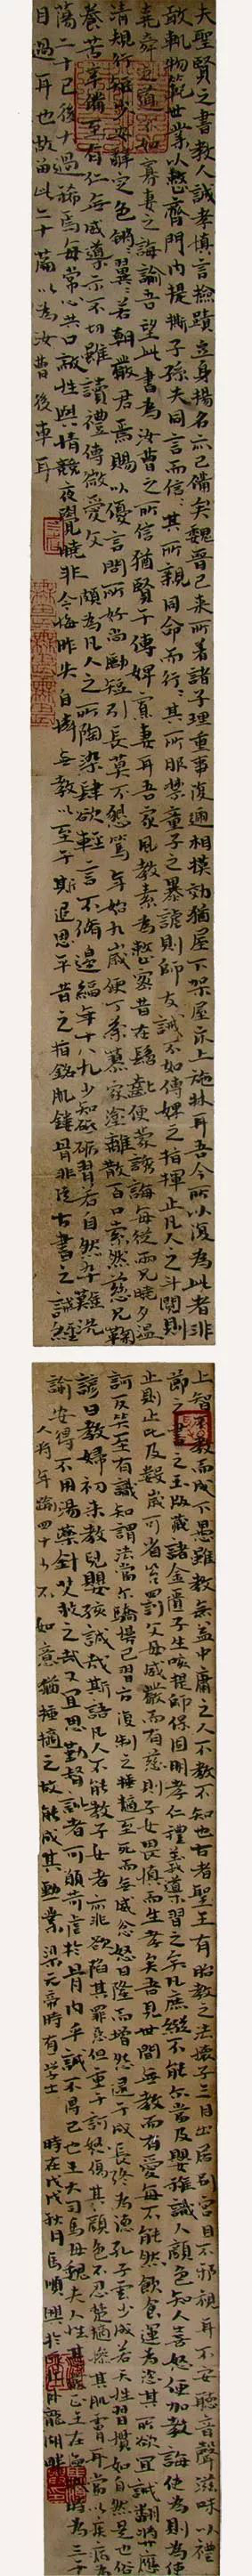 夫聖賢之書教人誠孝慎言撿蹟立身揚名亦已備矣魏晉已來所著諸子理重事復遞相模効猶屋下架屋床上施牀耳吾今所以復為此者非
敢軌物範世業以整齊門內提撕子孫夫同言而信信其所親同命而行行其所服禁童子之暴謔則師友之誡不如傅婢之指揮止凡人之斗鬩則
堯舜之道不如寡妻之誨諭吾望此書為汝曹之所信猶賢于傅婢寡妻耳吾家風教素為整密昔在齠齔便蒙誘誨每從兩兄曉夕溫
清規行矩步安辭定色鏘鏘翼翼若朝嚴君焉賜以優言問所好尚勵短引長莫不懇篤年始九歲便丁荼蓼家塗離散百口索然慈兄鞠
養苦辛備至有仁無威導示不切雖讀禮傳微愛文頗為凡人之所陶染肆欲輕言不脩邊幅年十八九少知砥礪習若自然卒難洗
蕩二十已後大過稀焉每常心共口敵性與情競夜覺曉非今悔昨失自憐無教以至于斯追思平昔之指銘肌鏤骨非徒古書之誡經
目過耳也故留此二十篇以為汝曹後車耳
上智不教而成下愚雖教無益中庸之人不教不知也古者聖王有胎教之法懷子三月出居別宮目不邪視耳不妄聽音聲滋味以禮
節之書之玉版藏諸金匱子生咳提師保固明孝仁禮義導習之矣凡庶縱不能爾當及嬰稚識人顏色知人喜怒便加教誨使為則為使
止則止比及數歲可省笞罰父母威嚴而有慈則子女畏慎而生孝矣吾見世間無教而有愛每不能然飲食運為恣其所欲宜誡翻獎應
訶反笑至有識知謂法當爾驕慢已習方復制之捶撻至死而無威忿怒日隆而增怨逮于成長終為德孔子云少成若天性習慣如自然是也俗
諺曰教婦初來教兒嬰孩誠哉斯語凡人不能教子女者亦非欲陷其罪惡但重于訶怒傷其顏色不忍楚撻慘其肌膚耳當以疾病為
諭安得不用湯藥針艾救之哉又宜思勤督訓者可願苛虐於骨肉乎誠不得已也王大司馬母魏夫人性甚嚴正王在湓城時為三千
人將年踰四十少不如意猶捶撻之故能成其勳業梁元帝時有學士 時在戊戌秋月馬順興於臥龍湖畔